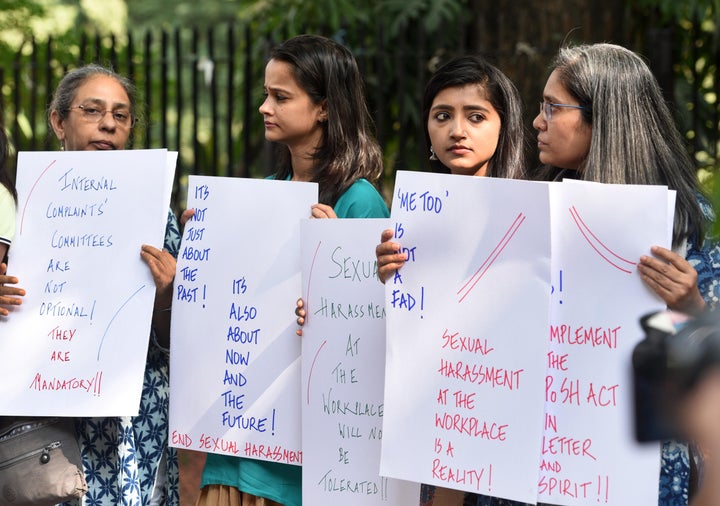 INTERNAL
COMPLAINTS'
COMMITTEES
ARE
NOT
OPTIONAL!
THEY
ARE
MANDATORY!!
IT'S
NOT
JUST
ABOUT
THE
PAST!
IT'S
ALSO
ABOUT
NOW
AND
THE
FUTURE!
END SEXUAL HARASSMENT
SEXUA
HARASSMENT
AT
THE
WORKPLACE
WILL NO
BE
TOLERATED!!
'ME TOO'
IS
NOT
A
FAD!
SEXUAL
HARASSMENT
AT THE
WORKPLACE
IS A
REALITY!
!
MPLEMENT
THE
POSH ACT
IN
LETTER
AND
SPIRIT!!